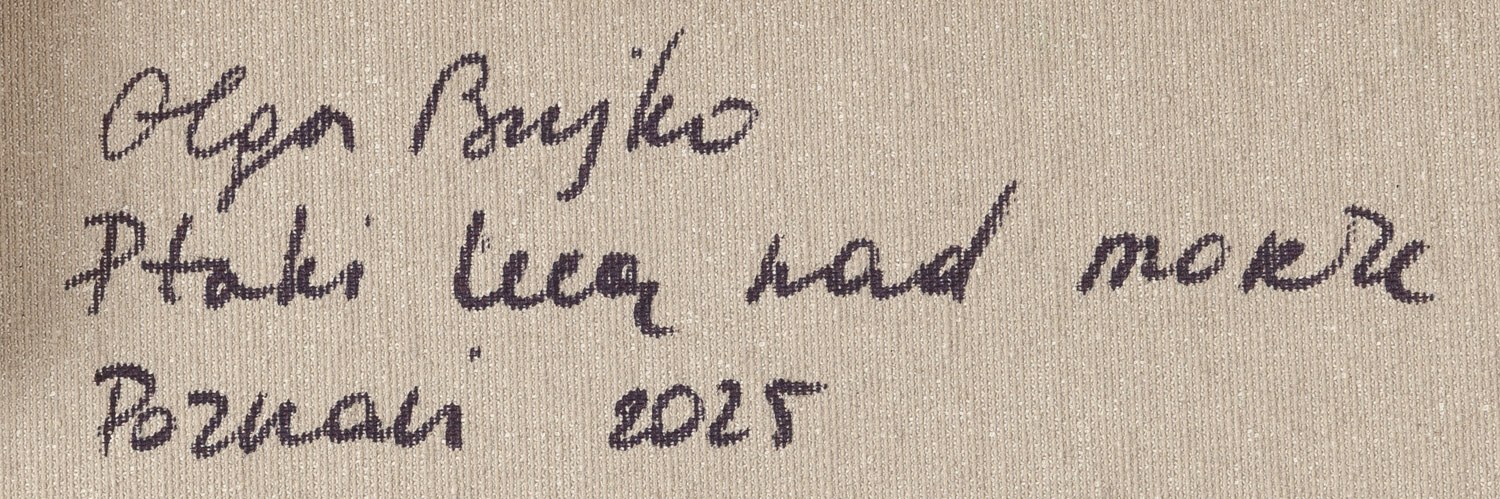 Olga Bujko
Ptaki lecą nad morze
Poznań 2025